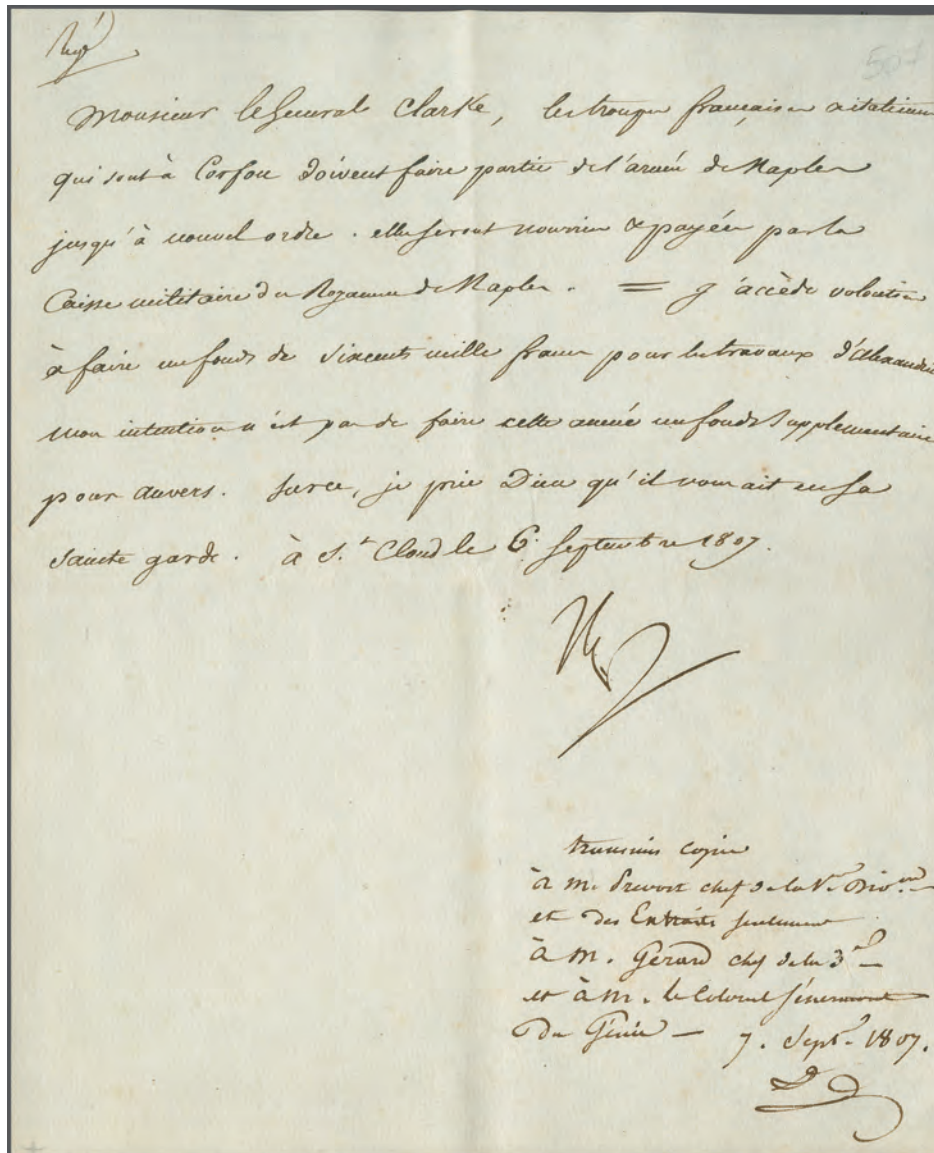 Monsieur le General Clarke, les troupes françaises & italiennes
qui sont à Corfou doivent faire partie de l'armée de Naples
jusqu'à nouvel ordre. elles seront nourries & payées par la
Caisse militaire du Royaume de Naples. = j'accède volontiers
à faire un fonds de Sixcents mille francs pour les travaux d'Alexandrie
mon intention n'est pas de faire cette année un fonds Supplementaire
pour anvers. Surce, je prie Dieu qu'il vous ait en Sa
Sainte garde. à St Cloud le 6. Septembre 1807.
Np
transmis copie
à M. Prevost chef de la Ve Divon
et des Extraits seulement
à M. Gérard chef de la 3e
et à M. le Colonel Sénermont
Du Génie — 7. Sept. 1807.